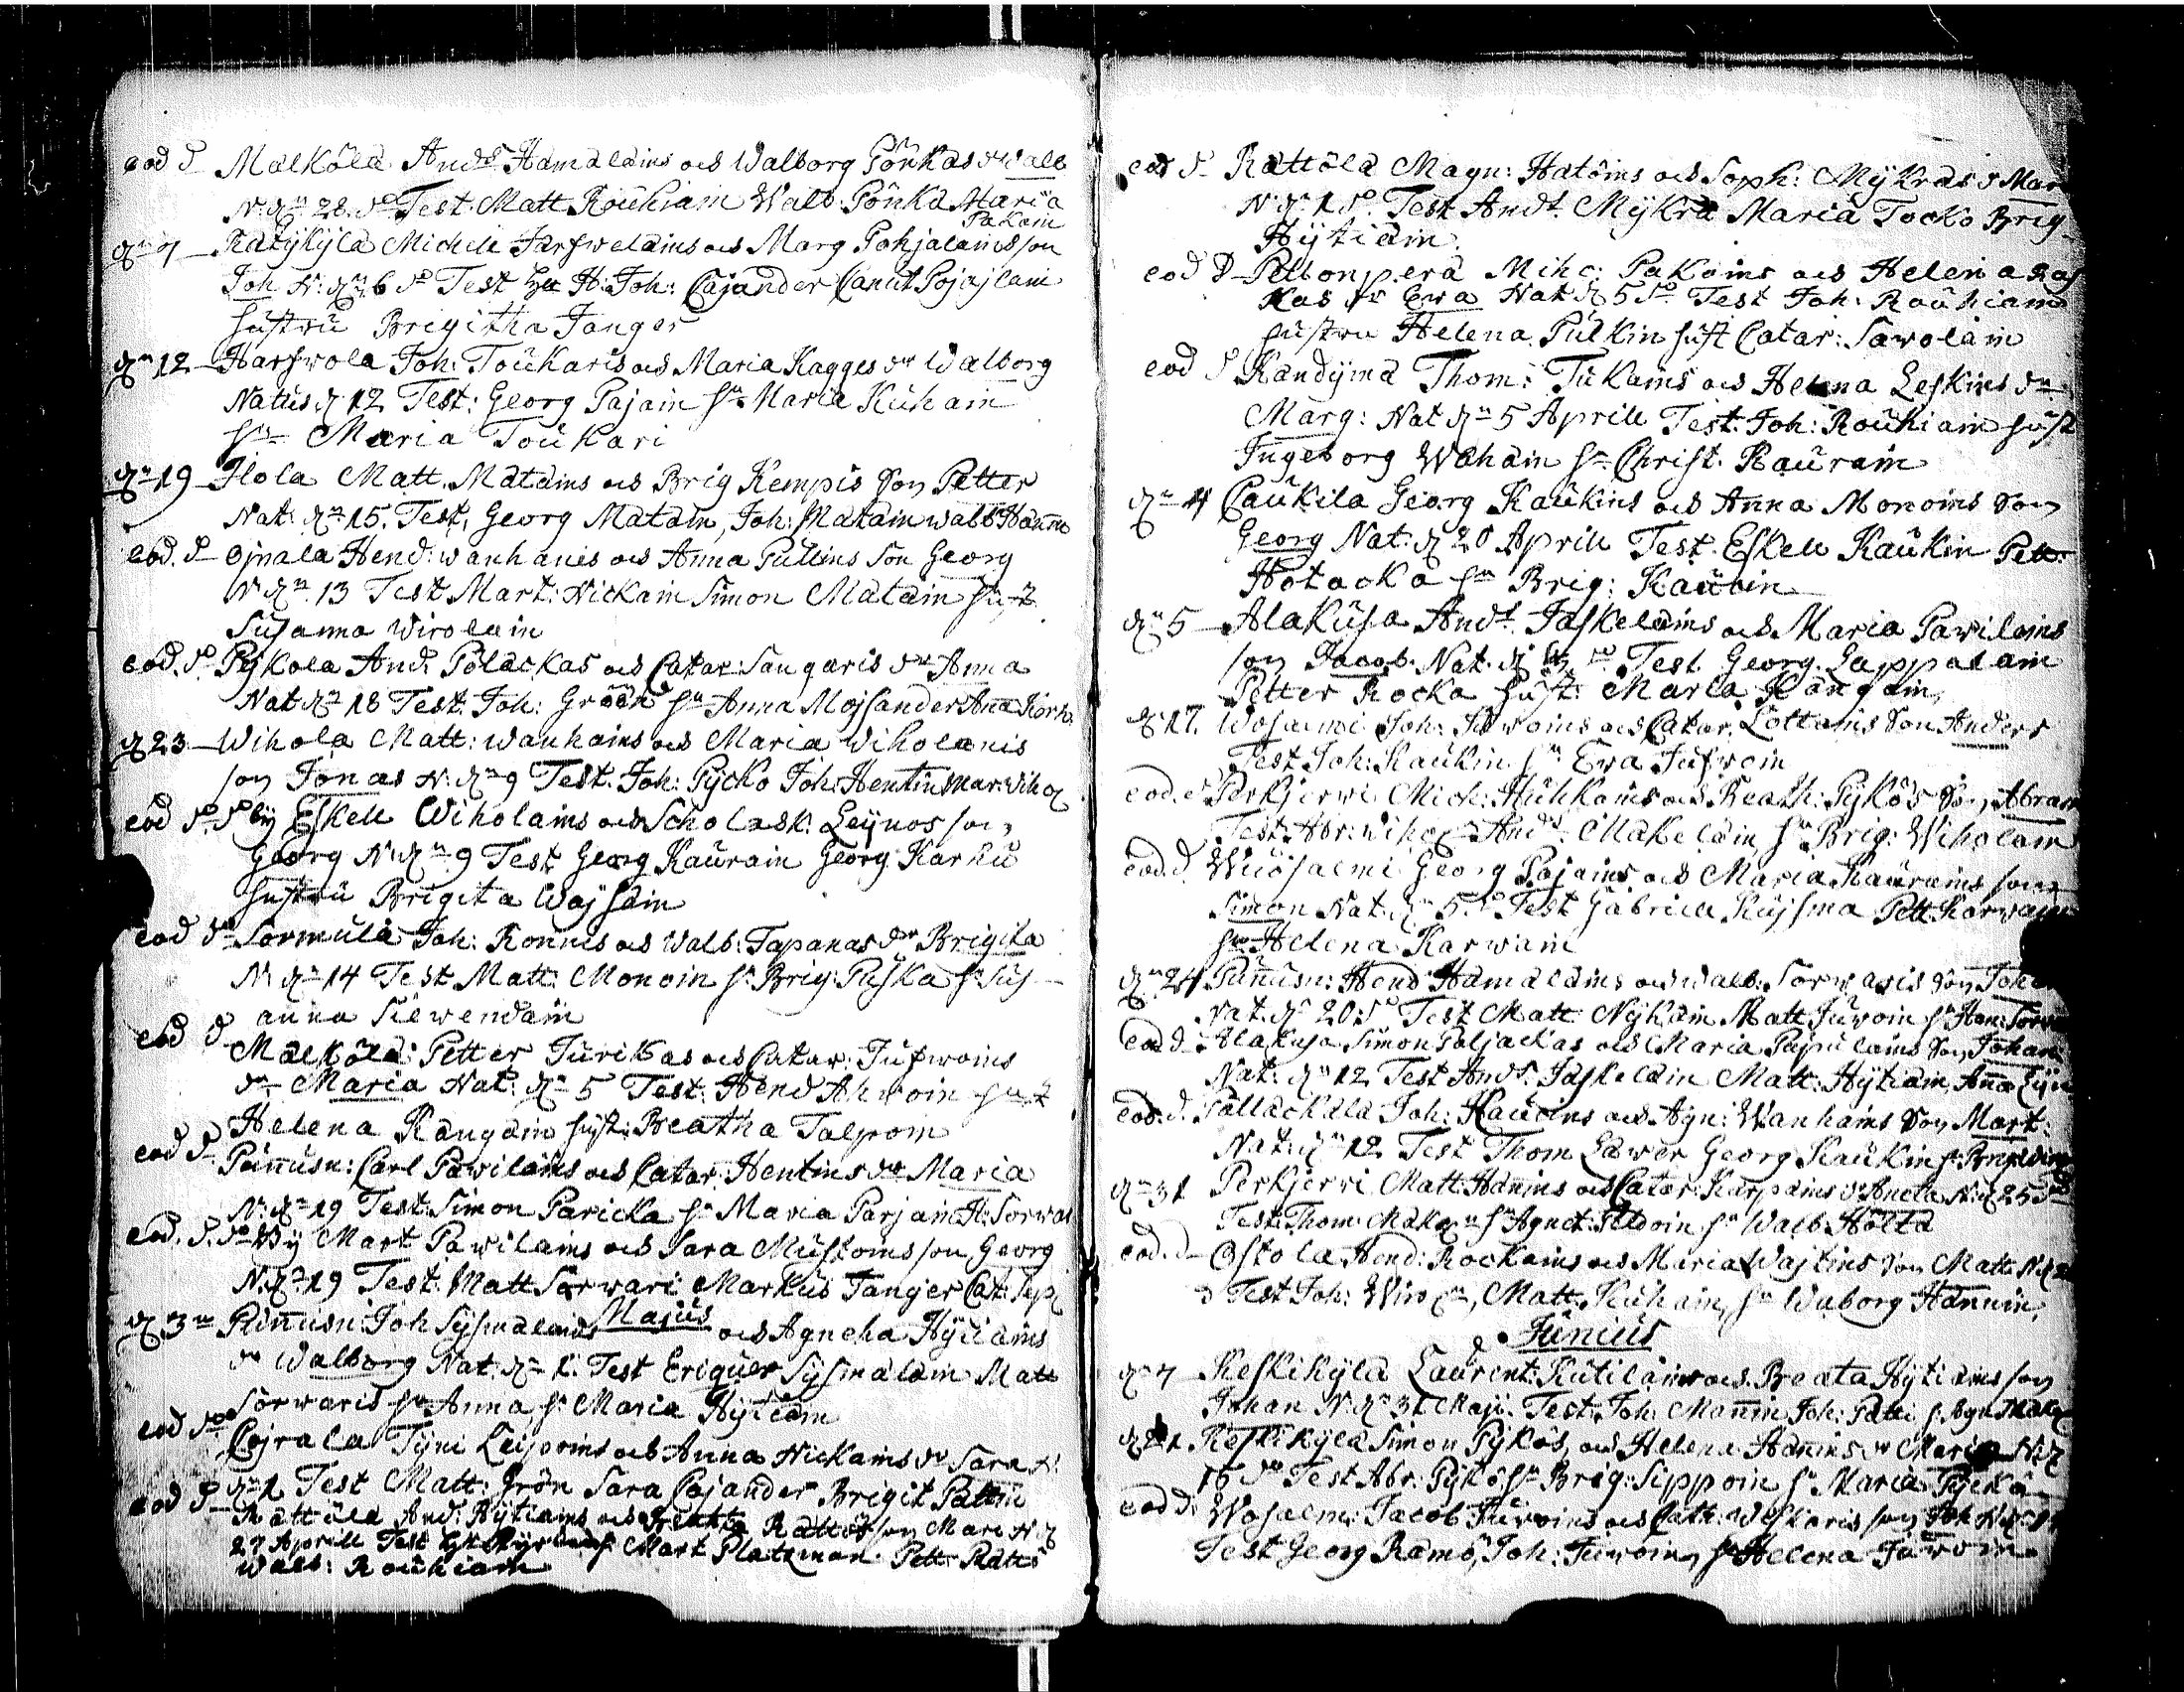 eod d Mälkölä Andr Hämäläins och Walborg Pönkäs dr Walb
N: dn 28 do Test: Matt Rouhiain Walb: Pönkä Maria
Pakain
dn 7 Ratykylä Michell Järfweläins och Marg Pohjalains son
Joh N: dn 6 do Test H: Joh: Cajander Canut Pojajlain
hustru Brigitha Janger
dn 12 Harfwola Joh: Toukaris och Maria Kagges dr Walborg
Natus d 12 Test: Georg Pajain hu Maria Kuhain
hu Maria Toukari
dn 19 Ilola Matt. Matains och Brig Kempis son Petter
Nat: dn 15. Test, Georg Matain, Joh: Matain walb Hännin
eod. d Ojnala Hend: wanhanis och Anna Pullins son Georg
N dn 13 Test Mart: Nickain Simon Matain hust
Susanna Wirolain
eod. do Pykola And: Poläckas och Catar: Sangaris dr Anna
Nat dn 18 Test: Joh: Groen hu Anna Mojsander Aña Körk
d 23 Wihola Matt: wanhains och Maria Wiholanis
son Jonas N: dn 9 Test. Joh: Pycko Joh: Hentin Mar: Wihol
eod do do by Eskell Wiholains och Scholask: Leynos son
Georg N: dn 9 Test Georg Kaurain Georg Karhu
hustru Brigita Wajsain
eod do Sormula Joh: Ronnis och Walb: Tapanas dr Brigita
N: dn 14 Test Matt: Monoin hu Brig: Puska hu Sus
anna Siewendäin
eod d Mälkölä: Petter Jurikas och Catar: Jufwoins
dr Maria Nat: dn 5 Test: Hend Ahwoin hust
Helena Kangain hust: Beatha Talpoin
eod d Puñusn: Carl Pawilains och Catar: Hentins dr Maria
N: dn 19 Test: Simon Paricka hu Maria Parjain H: Sorwar
eod. d. do By Mart Pawilains och Sara Mustoins son Georg
N: dn 19 Test: Matt Sorwari Markus Tanger Cat: Sep
Majus
d 3 Puñusn: Joh Sysmalains och Agneha Hytiains
dr Walborg Nat: dn 1: Test Eriquer Sysmalain Matt
Sorwaris hu Anna, hu Maria Hytiain
eod do Cojrala Tyni Leipoins och Anna Nickains dr Sara N:
dn 1 Test Matt: Grön Sara Cajander Brigit Pättin
eod d Rättölä And: Hytiains och Beatha Rättös son Mart N: d
27 Aprill Test Mart Platzman. Pett: Rättö
Walb: Rouhiain
eod d Rättölä Magn: Hatoins och Soph: Mykräs d Mar
N: d 1 do. Test Andr. Mykrä Maria Tocko Brig
Hytiain
eod d Peltonperä Mihc: Pakains och Helena Ras
kas dr Ewa Nat d 5 do Test Joh: Rouhiain
hustru Helena Pulkin hust Catar: Sawolain
eod d Kandymä Thom: Tukains och Helena Leskins dr
Marg: Nat dn 5 Aprill Test: Joh: Rouhiain hust
Ingeborg Wähäin hu Christ. Kaurain
dn 4 Caukila Georg Kaukins och Anna Monoins son
Georg Nat: d 20 Aprill Test: Eskell Kaukin Pett:
Hotacka hu Brig: Kaukin
dn 5 Alakusa Andr. Jaskeläins och Maria Pawilains
son Jacob Nat. d do Test Georg. Lappalain
Petter Rocka hust: Maria Kangain
d 17. Wosalmi Joh: Juwoins och Catar. Lottains son Anders
Test Joh: Kaukin hu Ewa Jufwoin
eod. d Perkjerwi Mich: Huhkains och Beath: Pykös son Abram
Test: Abr: wihol Andr Mäkeläin hu Brig: Wiholain
eod. d. Wuosalmi Georg Pajains och Maria Kaurains son
Simon Nat: d 5. do Test Gabriell Kuisma Pett. Karwain
hu Helena Karwain
dn 24 Puñusn: Hend Hämäläins och walb: Sorwaris son Johan
Nat: d 20: do Test Matt: Nykäin Matt Juwoin hu Han: Sorwar
eod d Alakusa Simon Poljackas och Maria Papulains son Johan
Nat: dn 12 Test Andr. Jaskelain Matt: Hytiäin, Aña
eod. d. Pällackälä Joh: Kaukins och Agn: Wanhains son Mart:
Nat: dn 12 Test Thom Lawer Georg Kaukin hu
dn 31 Perkjerwi Matt: Hänins och Catar: Karpains dr Aneta N: d 25 do
Test: Thom: Mäkel hu Agnet: hu Walb: Höltä
eod. d Ostola Hend: Rockains och Maria Wajtins son Matt: N: d
d Test Joh: Wiro Matt. Kuhain, hu Waborg Hännin,
Junius
dn 7 Keskikylä Laurent: Kutilains och Beata Hytiains son
Johan N: dn 31 Maji. Test: Joh: Mannin Joh: Patti hu Agn Mäkel
Keskikylä Simon Pykös och Helena Hänins dr Maria N: d
16 do Test Abr: Pykö hu Brig: Sippoin hu Maria Pyckö
eod d: Wosalm: Jacob Juwoins och Cath: Weskaris son Joh N:
Test Georg Rämö, Joh: Juwoin, hu Helena Juwoin